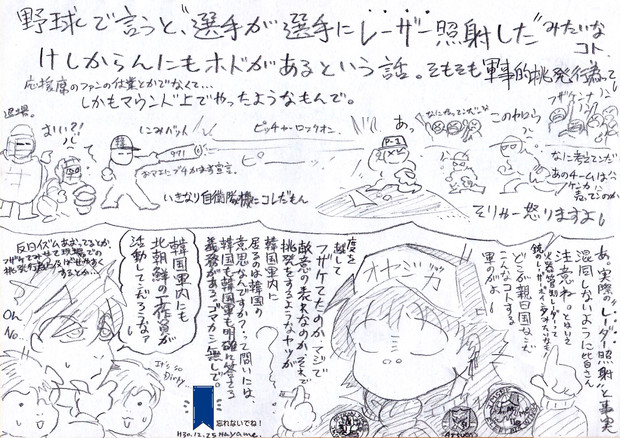 野球で言うと、"選手が選手にレーザー照射した"みたいな
コト、
けしからんにもホドがあるという話。そもそも軍事的挑発行為って
応援席のファンの仕業とかでなくて…
しかもマウンド上でやったようなもんで。
退場。
おい!?
にみバット
ピッチャーロックオン。
971
おマエにブチかます宣言。
いきなり自衛隊機にコレだもん
ピー
あっ
なにやってんだァ
このヤロウ
フザケんな
なに考えてンだ
あのチームは!?
ケンカ
売ってンのか
そりゃー怒りますよ!
あ。実際"レーダー照射"と事実
混同しないように皆さん
注意ね。とはいえ
どこが親日国なンだ
こんなコトする
軍のがよ。
オヤジカ
度を
越して
フザケてたのかマジで
敵意の表れなのか、それで
挑発をするようなヤツが
韓国軍内に
居るのは韓国の
意思なんですか?って問いには、
韓国も韓国軍も明確に答える
義務がある。ゴマカシ無しで。
韓国軍内でも
北朝鮮の工作員が
活動してンだろうなァ
反日イズムあおってるとか、
フザケすぎみせて現場での
挑発行為
Oh
No..
It's so
Dirty
忘れないでね!
H30.12.25 Hayame.